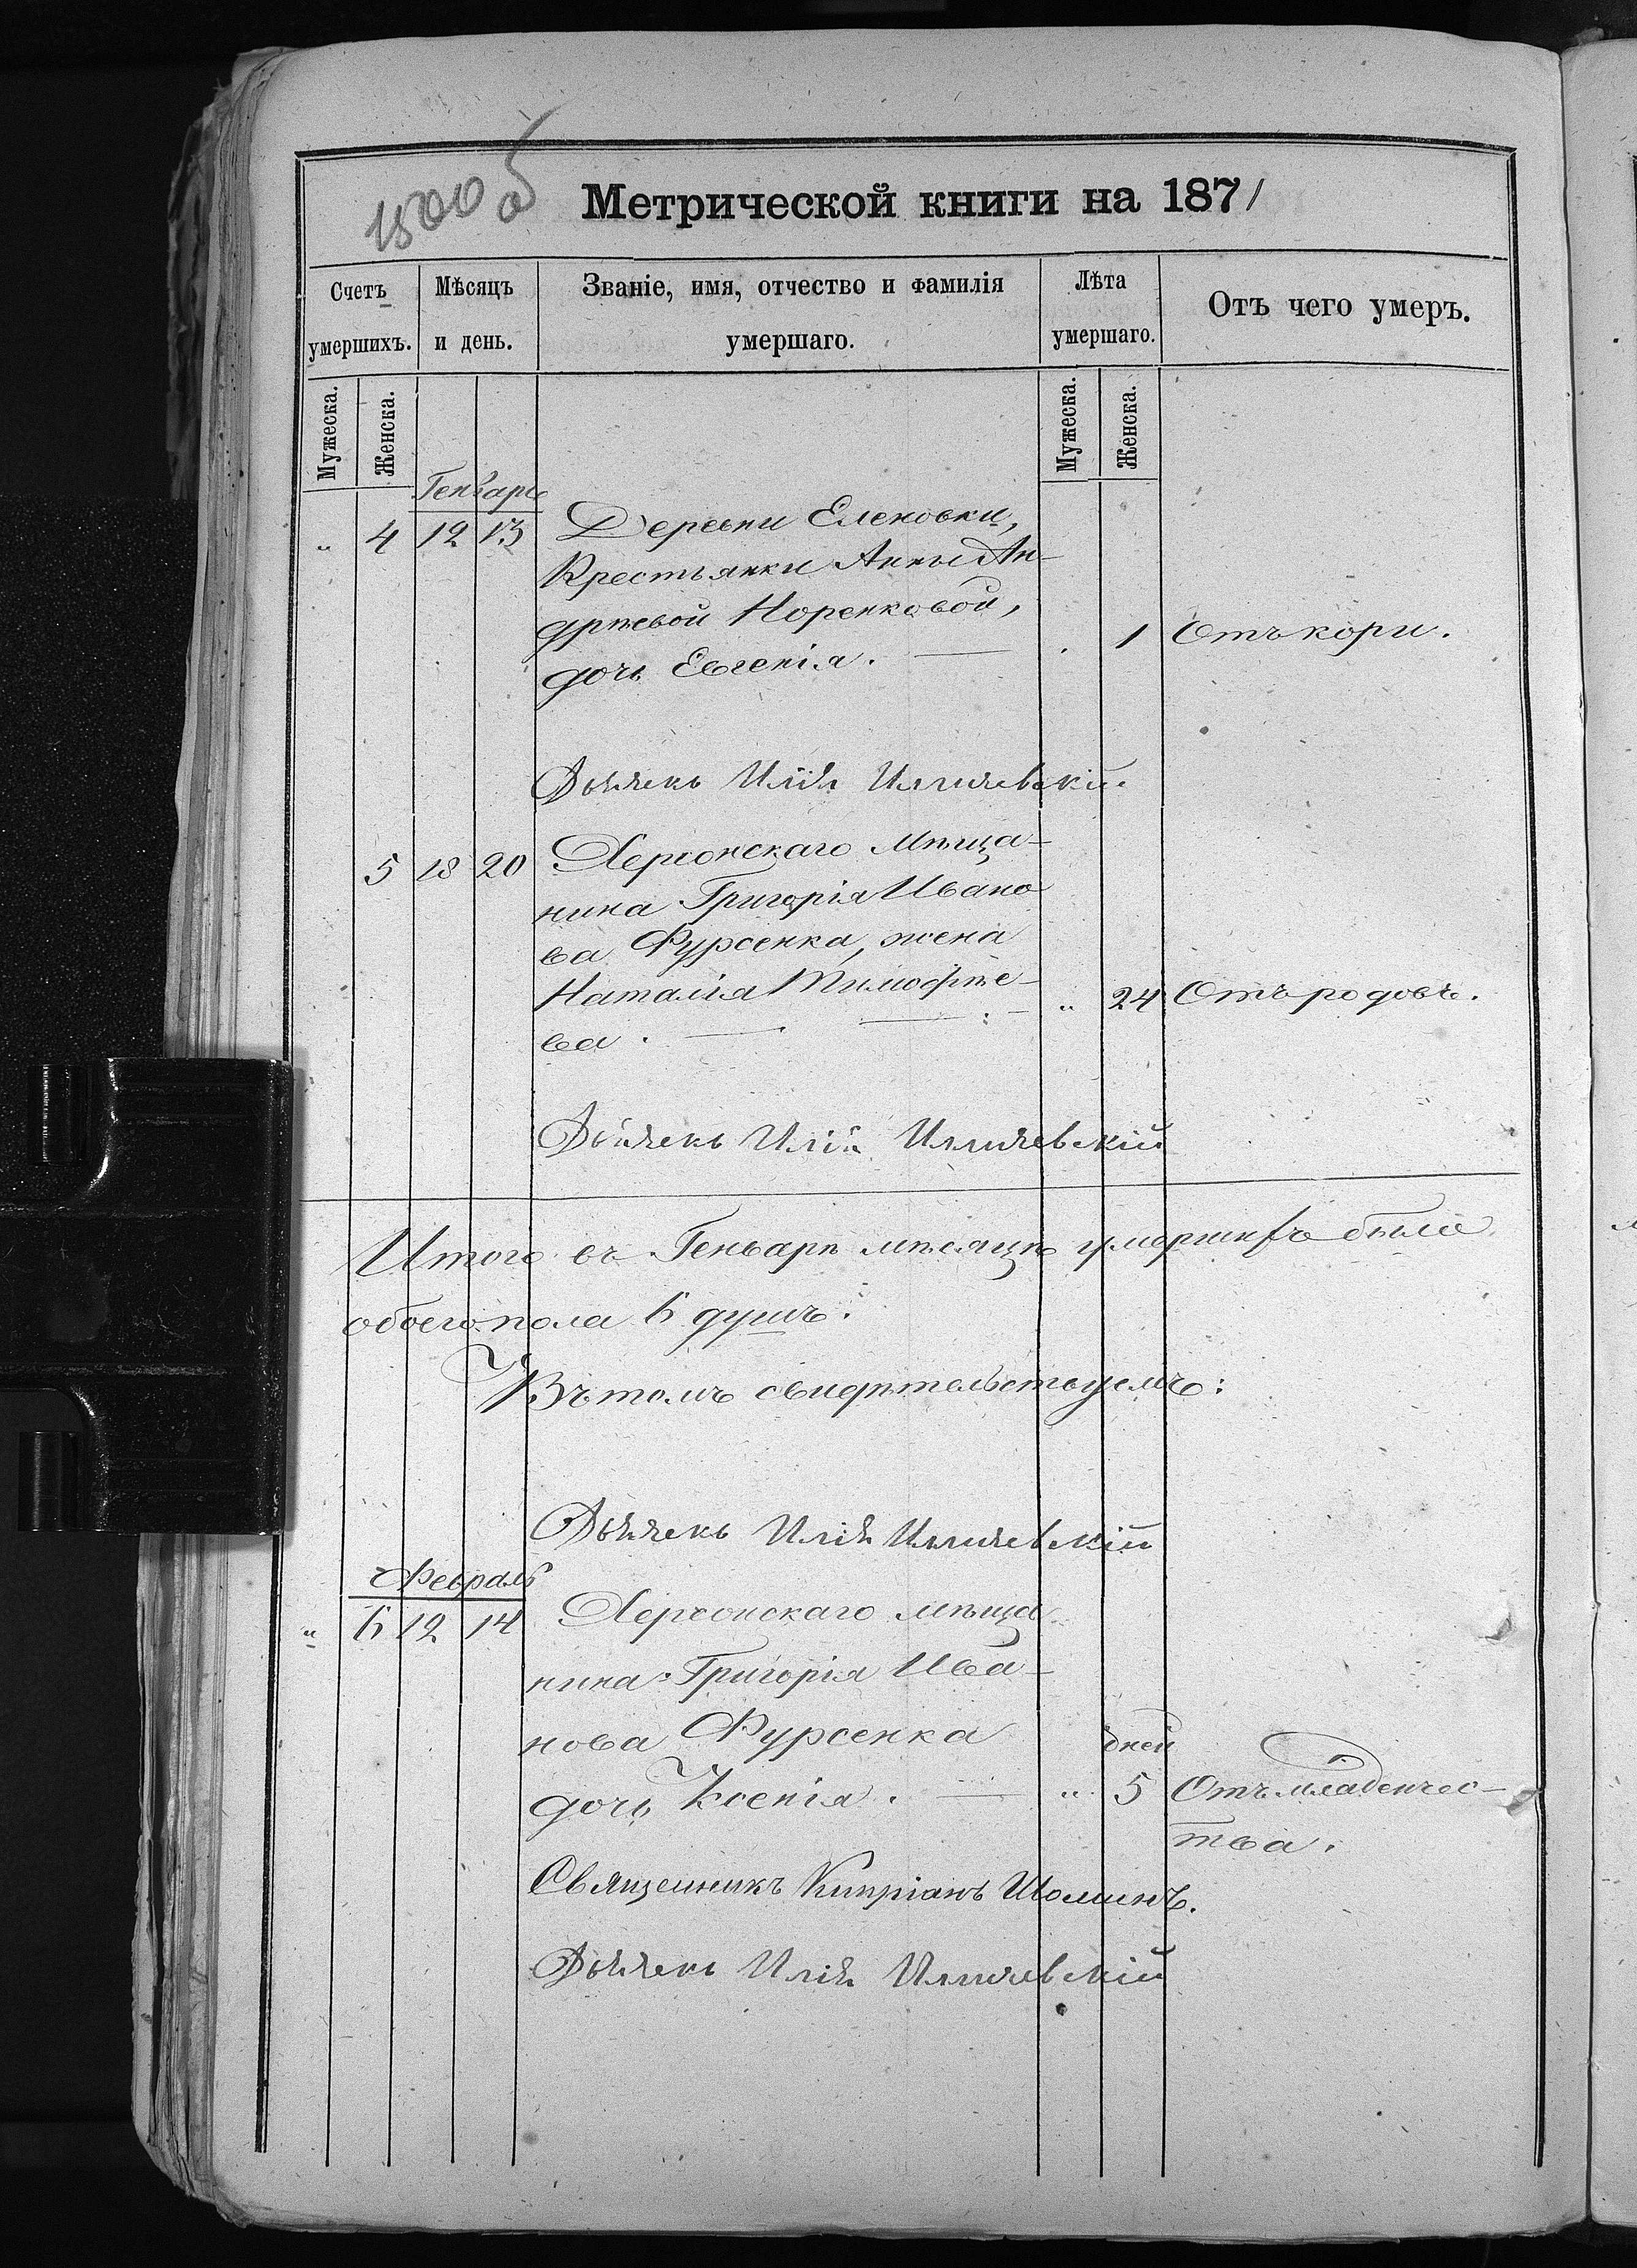 1500 об
Метрической книги на 1871
Счетъ умершихъ.
Мѣсяцъ и день.
Званіе, имя, отчество и фамилія умершаго.
Лѣта умершаго.
Отъ чего умеръ.
Мужеска.
Женска.
Мужеска.
Женска.
Генварь
" 4 12 13 Деревни Еленовки,
Крестьянки Анны Ан-
дрѣевой Норенковой, 1 Отъ кори.
дочь Евгенія. —
Дьячекъ Илія Илличевскій
5 18 20 Херсонскаго Мѣща-
нина Григорія Ивано
ва Фурсенка, жена
Наталія Тимофѣе- " 24 Отъ родовъ.
ва. —
Дьячекъ Илія Илличевскій
Итого въ Генварѣ мѣсяцѣ умершихъ было
обоего пола 6 душъ.
Въ томъ свидѣтельствуемъ:
Дьячекъ Илія Илличевскій
Февраль
" 6 12 14 Херсонскаго мѣща
нина Григорія Ива-
нова Фурсенка дней
дочь Ксенія. — " 5 Отъ младенчес-
тва.
Священникъ Кипріанъ
Дьячекъ Илія Илличевскій